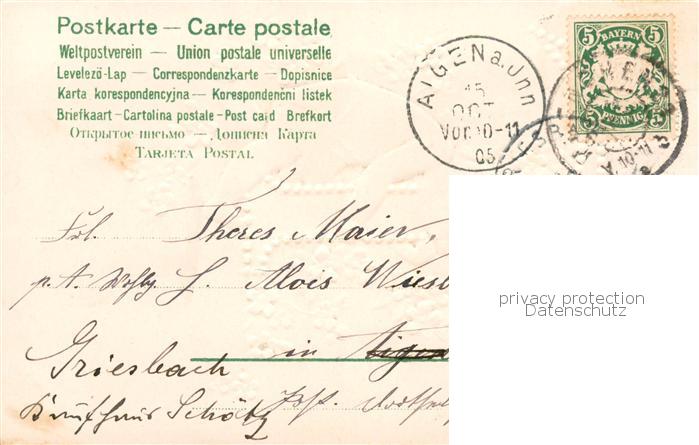 Postkarte — Carte postale
Weltpostverein — Union postale universelle
Levelező-Lap — Correspondenzkarte — Dopisnice
Karta korespondencyjna — Korespondenčni listek
Briefkaart - Cartolina postale - Post card Brefkort
Открытое письмо — Дописна Карта
TARJETA POSTAL
AIGEN a. Jnn
15
OCT
Vor. 10-11
05
5 BAYERN 5
5 PFENNIG 5
V. 10-11
Frl. Theres Maier,
p. A. Alois
in Aigen
Griesbach
Kaufhaus
privacy protection
Datenschutz